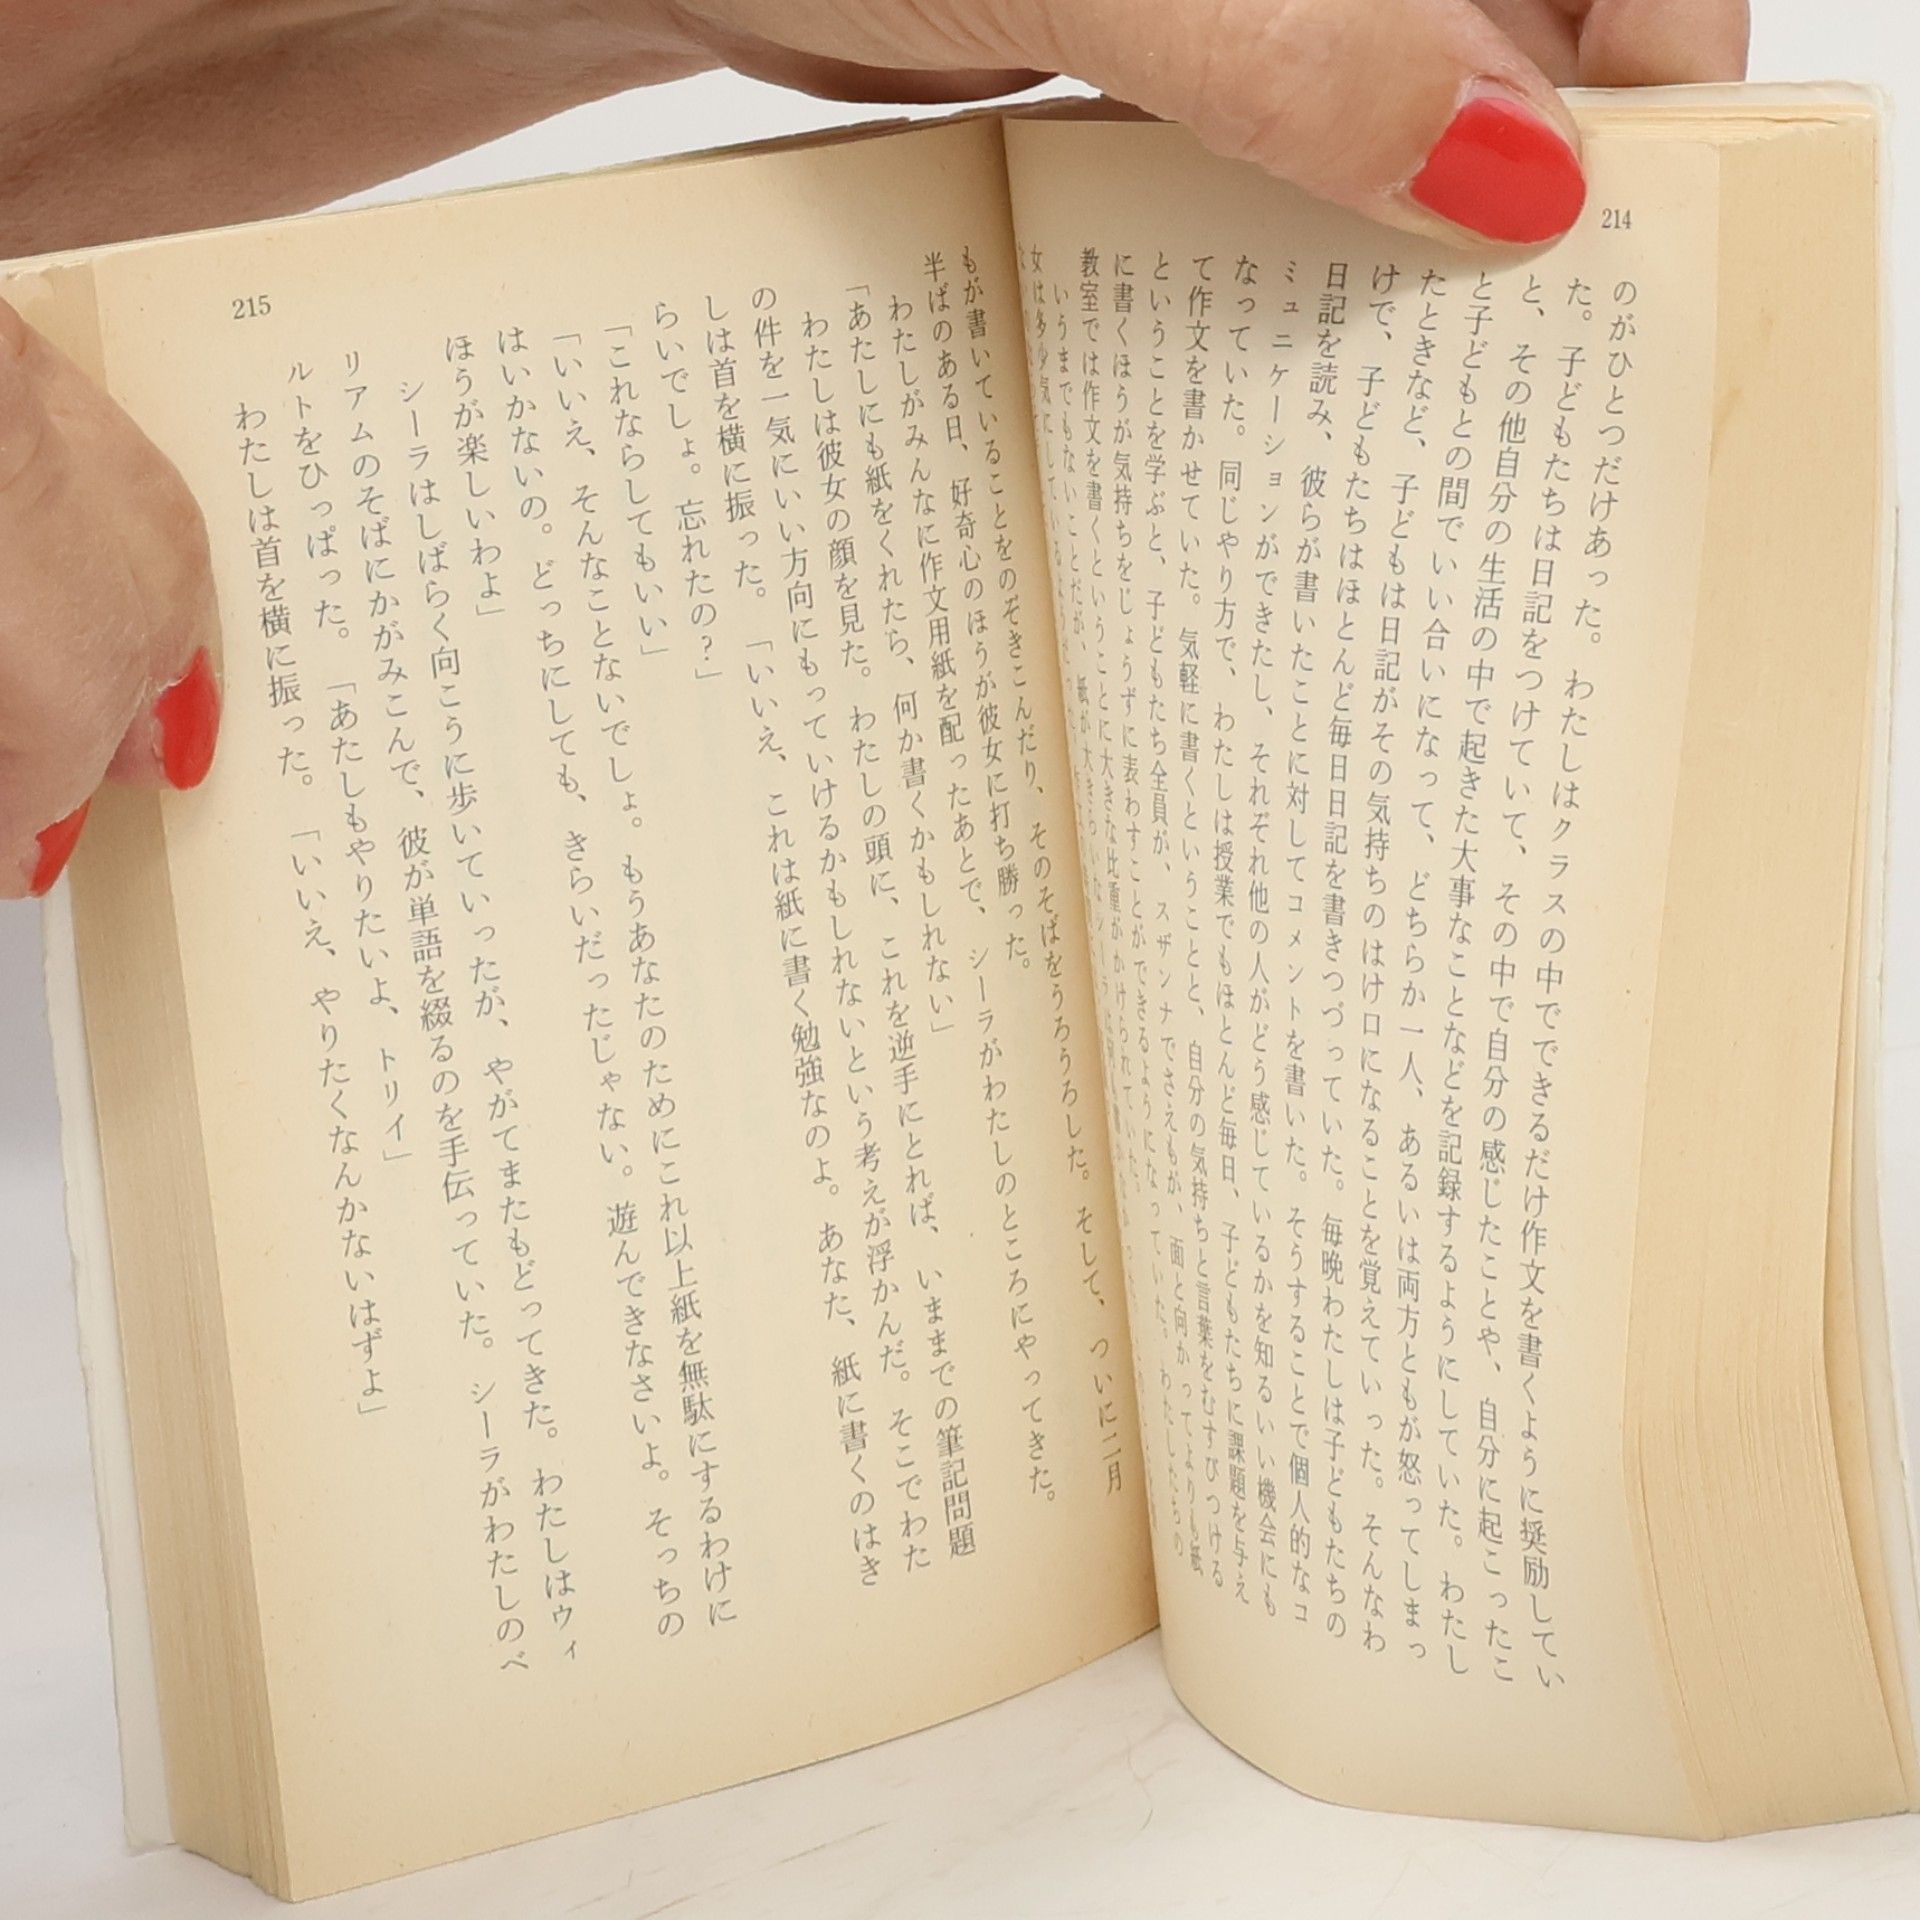 214
のがひとつだけあった。わたしはクラスの中でできるだけ作文を書くように奨励してい
た。子どもたちは日記をつけていて、その中で自分の感じたことや、自分に起こったこ
と、その他自分の生活の中で起きた大事なことなどを記録するようにしていた。わたし
と子どもとの間でいい合いになって、どちらか一人、あるいは両方ともが怒ってしまっ
たときなど、子どもは日記がその気持ちのはけ口になることを覚えていった。そんなわ
けで、子どもたちはほとんど毎日日記を書きつづっていた。毎晩わたしは子どもたちの
日記を読み、彼らが書いたことに対してコメントを書いた。そうすることで個人的なコ
ミュニケーションができたし、それぞれ他の人がどう感じているかを知るいい機会にも
なっていた。同じやり方で、わたしは授業でもほとんど毎日、子どもたちに課題を与え
て作文を書かせていた。気軽に書くということと、自分の気持ちと言葉をむすびつける
ということを学ぶと、子どもたち全員が、スザンナでさえもが、面と向かってよりも紙
に書くほうが気持ちをじょうずに表わすことができるようになっていた。わたしたちの
教室では作文を書くということに大きな比重がかけられていた。
いうまでもないことだが、紙が大きらいなシーラは
女は多少気にしているようだった
もが書いていることをのぞきこんだり、そのそばをうろうろした。そして、ついに二月
半ばのある日、好奇心のほうが彼女に打ち勝った。
わたしがみんなに作文用紙を配ったあとで、シーラがわたしのところにやってきた。
「あたしにも紙をくれたら、何か書くかもしれない」
わたしは彼女の顔を見た。わたしの頭に、これを逆手にとれば、いままでの筆記問題
の件を一気にいい方向にもっていけるかもしれないという考えが浮かんだ。そこでわた
しは首を横に振った。「いいえ、これは紙に書く勉強なのよ。あなた、紙に書くのはき
らいでしょ。忘れたの?」
「これならしてもいい」
「いいえ、そんなことないでしょ。もうあなたのためにこれ以上紙を無駄にするわけに
はいかないの。どっちにしても、きらいだったじゃない。遊んできなさいよ。そっちの
ほうが楽しいわよ」
シーラはしばらく向こうに歩いていったが、やがてまたもどってきた。わたしはウィ
リアムのそばにかがみこんで、彼が単語を綴るのを手伝っていた。シーラがわたしのベ
ルトをひっぱった。「あたしもやりたいよ、トリイ」
わたしは首を横に振った。「いいえ、やりたくなんかないはずよ」
215